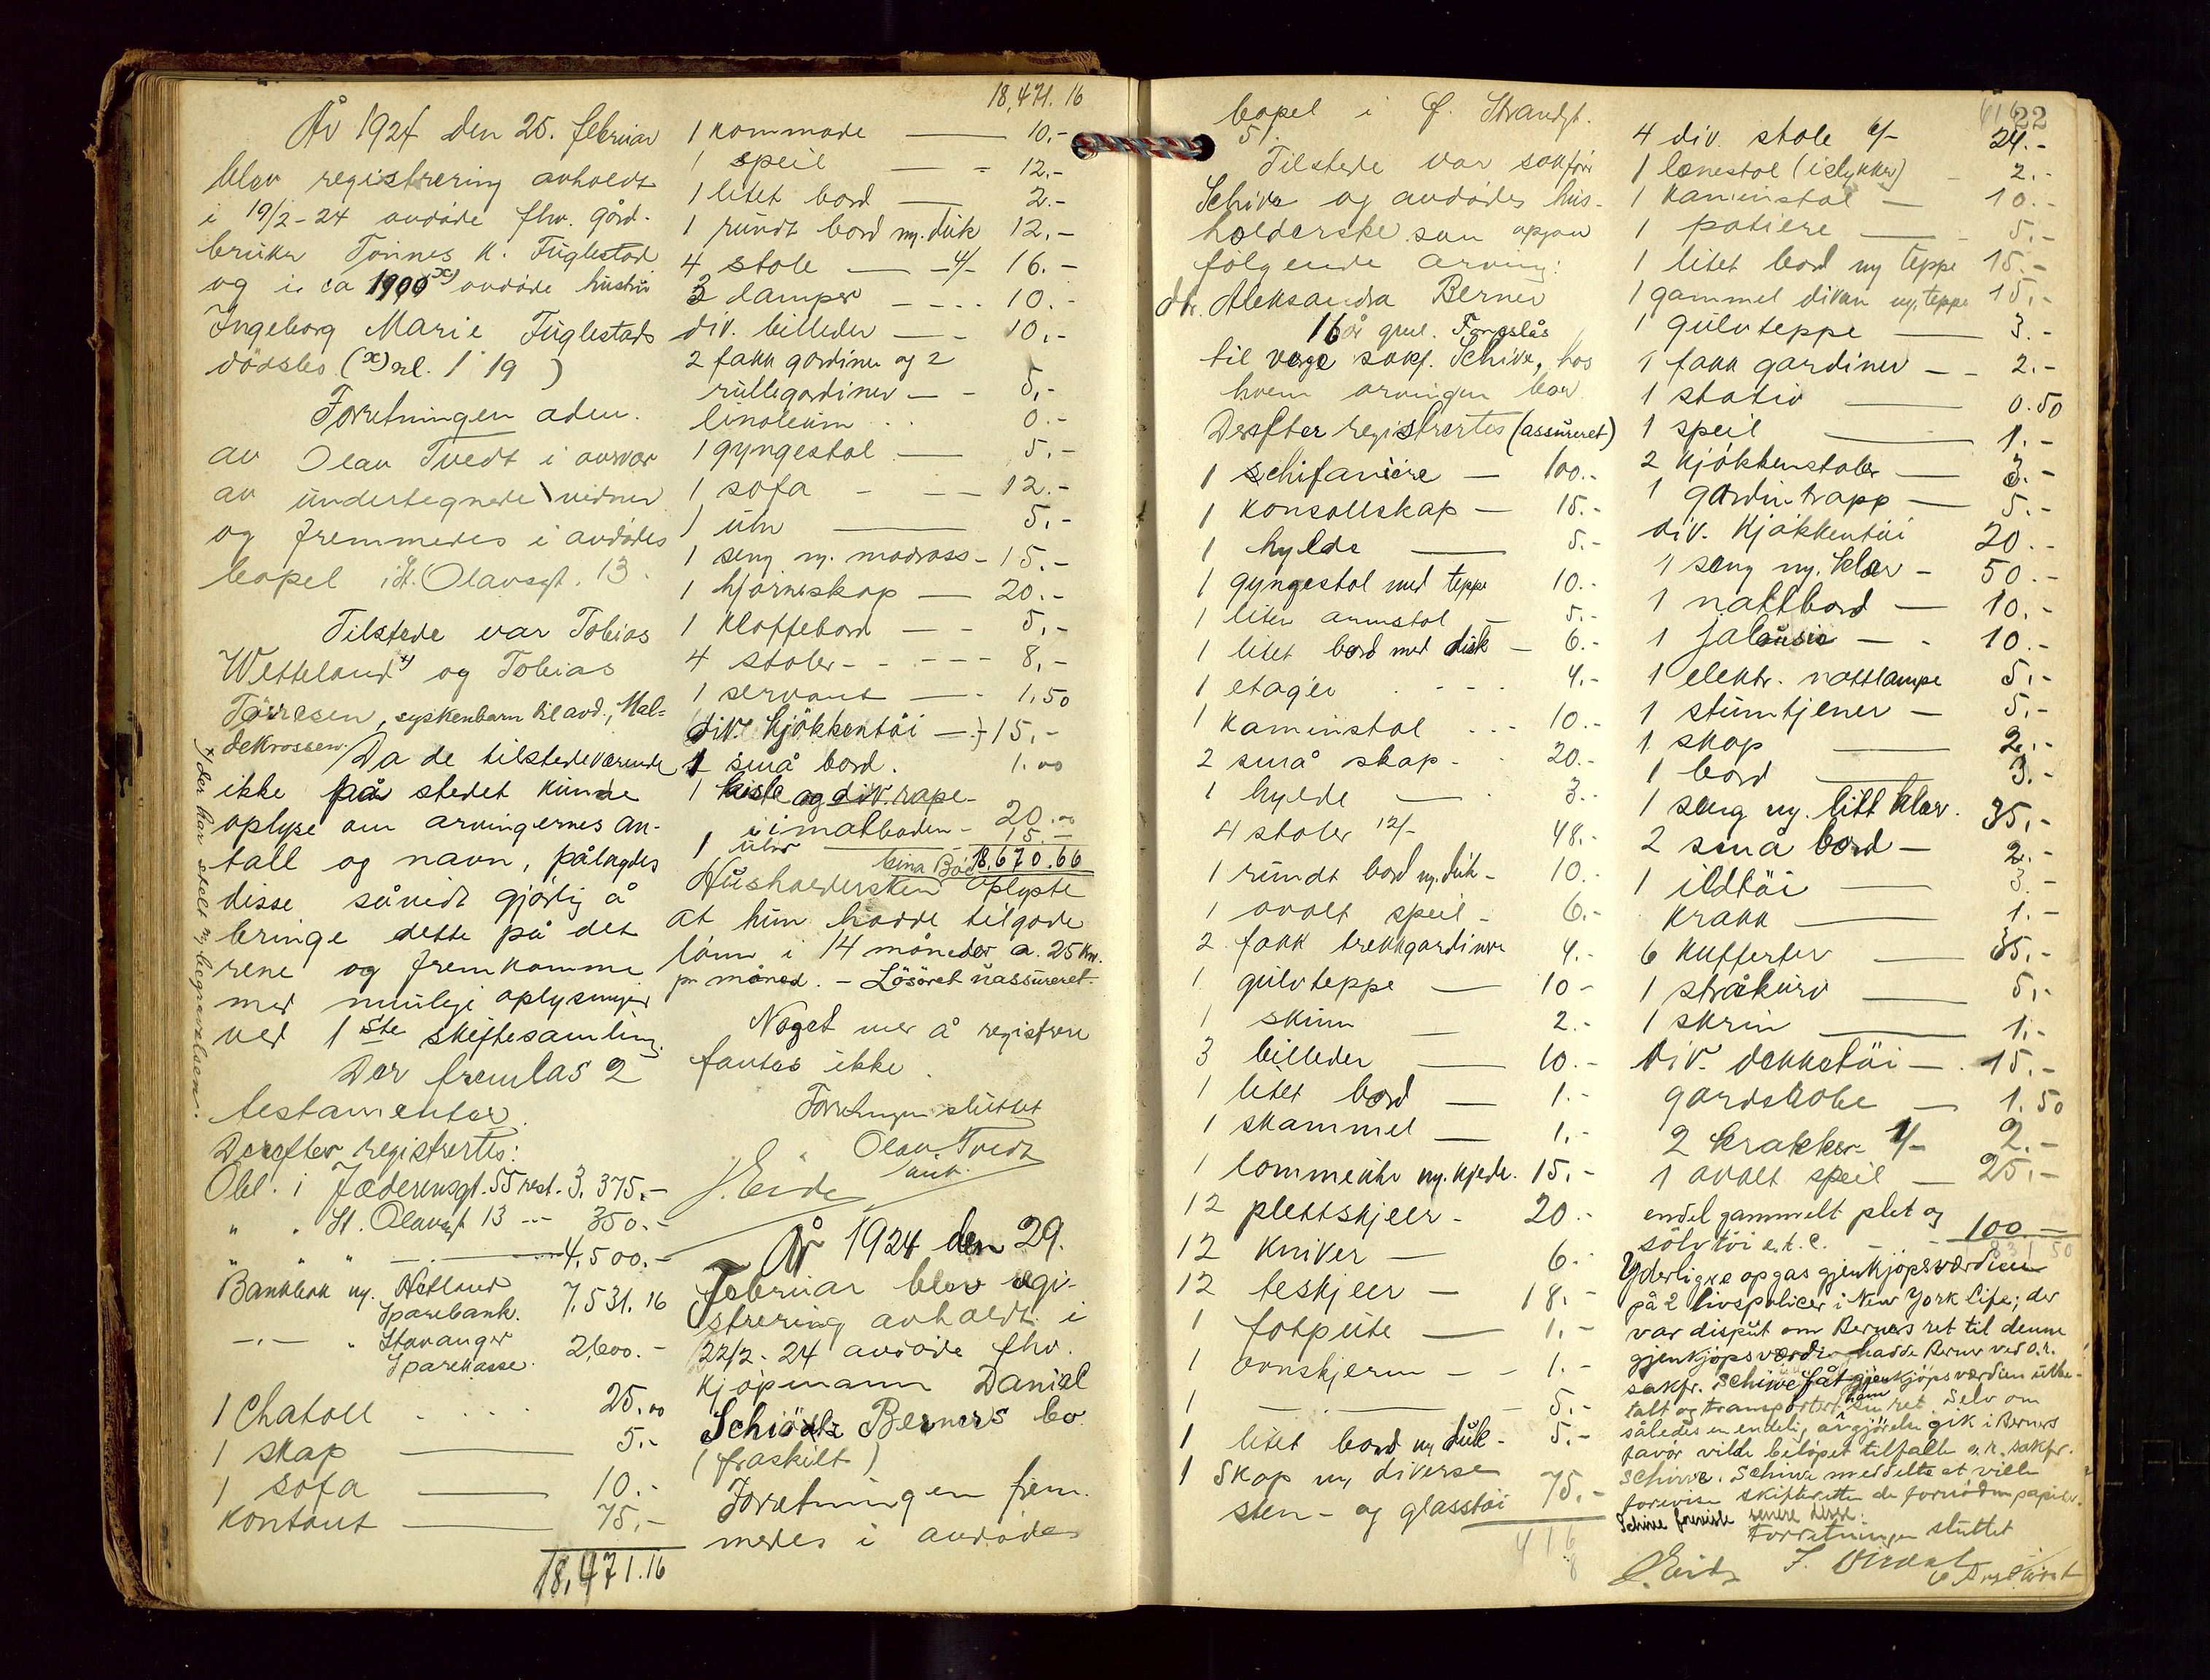 År 1924 den 25. februar
blev registrering avholdt
i 19/2-24 avdöde fhv. gård-
bruker Tönnes K. Fuglestad
og i ca 1900 x) avdöde hustru
Ingeborg Marie Fuglestads
dödsbo (x) kl. 1 19 )
Forretningen adm.
av Olav Tvedt i nærvær
av undertegnede vidner
og fremmedes i avdödes
bopel i St. Olavsgt. 13.
Tilstede var Tobias
Wetteland x) og Tobias
Törresen, syskenbarn til avd., Mal-
dekrossen. Da de tilstedeværende
ikke på stedet kunde
oplyse om arvingernes an-
tall og navn, pålagdes
disse såvidt gjörlig å
bringe dette på det
rene og fremkomme
med mulige oplysninger
ved 1ste skiftesamling.
Der fremlas 2
testamenter.
Derefter registrertes:
x) der har stelt m/ begravelsen.
Obl. i Jæderensgt. 55 rest. 3.375.-
" " St. Olavsgt 13 -- 350.-
" " " 4.500.-
Bankbok m/. Hetland
Sparebank. 7.531.16
-"- " Stavanger
Sparekasse. 2600.-
1 Chatoll 25.00
1 skap 5.-
1 sofa 10.-
Kontant 75.-
18,471.16
18,471.16
1 kommode 10.-
1 speil 12.-
1 litet bord 2.-
1 rundt bord m. duk 12.-
4 stole 4/- 16.-
3 lamper 10.-
div. billeder 10.-
2 fakk gardiner og 2
rullegardiner 5.-
linoleum 0.-
1 gyngestol 5.-
1 sofa 12.-
1 uhr 5.-
1 seng m. madrass 15.-
1 hjörneskap 20.-
1 klaffebord 5.-
4 stoler 8.-
1 servant 1,50
div. kjökkentöi 15.-
1 små bord. 1.00
1 kiste og div. rape-
i matboden 20.00
1 uhr 15.-
18.670.66
Husholdersken oplyste
at hun hadde tilgode
lönn i 14 måneder a. 25 kr.
pr måned. - Lösöret uassureret.
Noget mer å registrere
fantes ikke.
Forretningen sluttet
Olav Tvedt
aut.
J. Eide
År 1924 den 29.
Februar blev regi-
strering avholdt i
22/2-24 avdöde fhv.
kjöpmann Daniel
Schiötz Berners bo
(fraskilt)
Forretningen frem-
medes i avdödes
22
bopel i Ö. Strandgt.
5.
Tilstede var sakförer
Schive og avdödes hus-
holderske som opgav
følgende arving:
dtr. Aleksandra Berner
16 år gml. Foreslås
til verge sakf. Schive, hos
hvem arvingen bor.
Derefter registrertes (assureret)
1 schifaniere 100.-
1 konsollskap 15.-
1 hylde 5.-
1 gyngestol med teppe 10.-
1 liten armstol 5.-
1 litet bord med duk 6.-
1 etager 4.-
1 kaminstol 10.-
2 små skap 20.-
1 hylde 3.-
4 stoler 12/- 48.-
1 rundt bord m. duk 10.-
1 ovalt speil 6.-
2 fakk trekkgardiner 4.-
1 gulvteppe 10-
1 skinn 2.-
3 billeder 10.-
1 litet bord 1.-
1 skammel 1.-
1 lommeuhr m. kjede. 15.-
12 plettskjeer 20.-
12 kniver 6.-
12 teskjeer 18.-
1 fotpute 1.-
1 ovnskjerm 1.-
1 — 5.-
1 litet bord m duk 5.-
1 Skap m, diverse
sten- og glasstöi 75.-
416
4 div. stole 6/- 24.-
1 lænestol (istykker) 2.-
1 kaminstol 10.-
1 potiere 5.-
1 litet bord m teppe 15.-
1 gammel divan m, teppe 15.-
1 gulvteppe 3.-
1 fakk gardiner 2.-
1 stativ 0.50
1 speil 1.-
2 kjökkenstoler 3.-
1 gardintrapp 5.-
div. kjökkentöi 20.-
1 seng m. klær 50.-
1 nattbord 10.-
1 jalousie 10.-
1 elektr. nattlampe 5.-
1 stumtjener 5.-
1 skap 2.-
1 bord 3.-
1 seng m. litt klær. 35.-
2 små bord 2.-
1 ildtöi 3.-
krakk 1.-
6 kufferter 35.-
1 stråkurv 5.-
1 skrin 1.-
div. dekketöi 15.-
gardstobe 1.50
2 krakker 1/- 2.-
1 ovalt speil 25.-
endel gammelt plet og
sölvtöi e.t.c. 100.-
831 50
Yderligere opgas gjenkjöpsværdien
på 2 livspolicer i New York Life; der
var disput om Berners ret til denne
gjenkjöpsværdi, hadde Berner ved o.r.
sakfr. Schive fåt gjenkjöpsværdien utbe-
talt og transportert ham sin ret. Selv om
således en endelig avgjörelse gik i Berners
favör vilde belöpet tilfalle o.r. sakfr.
Schive. Schive meddelte at ville
forevise skifteretten de fornödne papirer.
Schive foreviste senere disse.
Forretningen sluttet
J. Eide